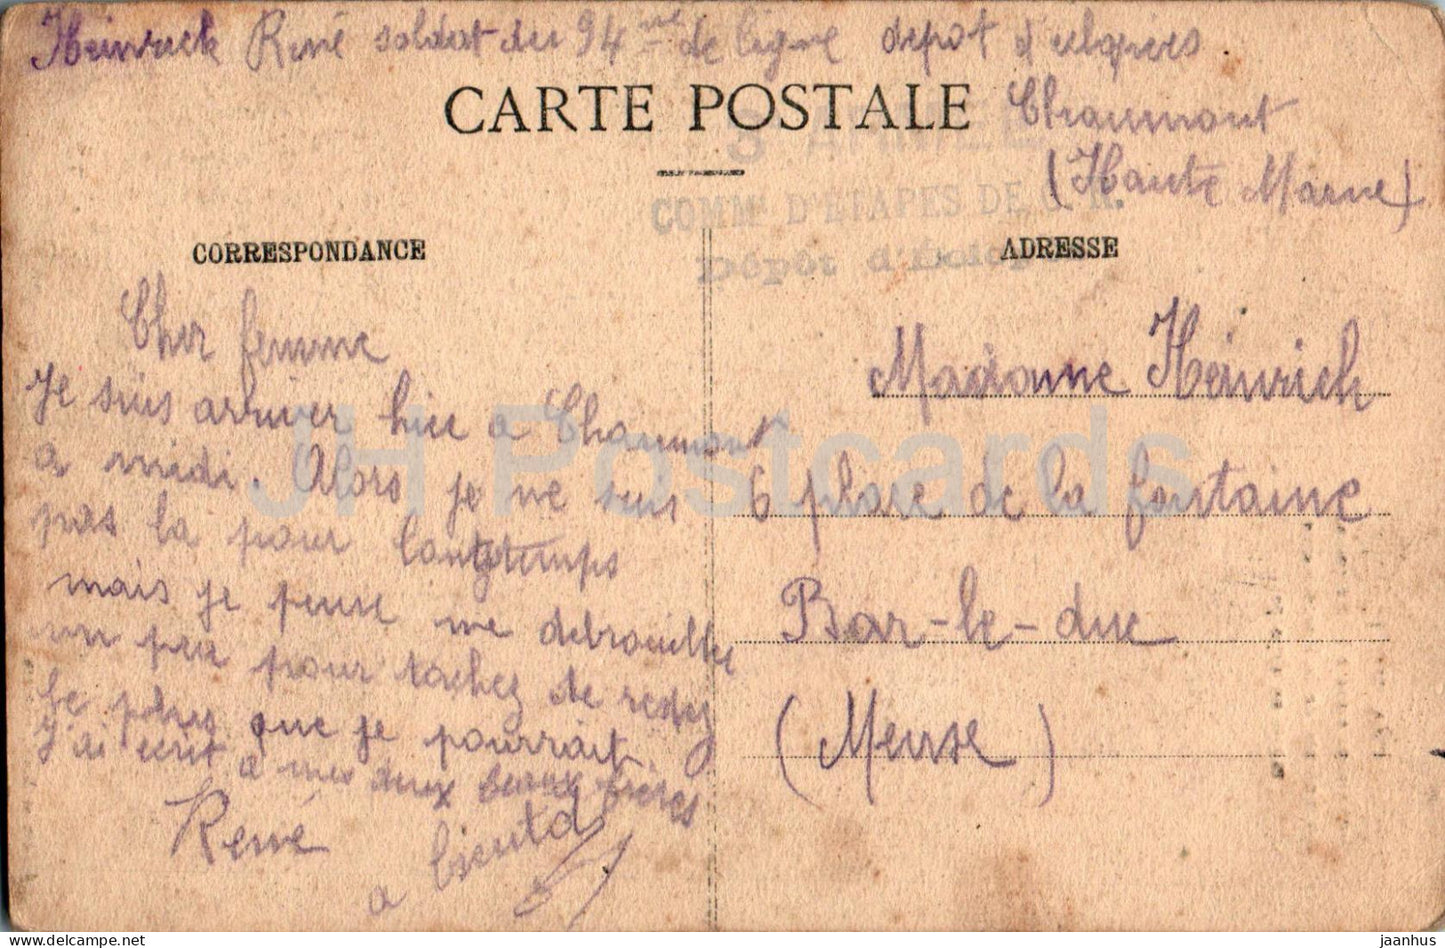 Heinrich René soldat du 94me de ligne depot d'eclopées
CARTE POSTALE
Chaumont
(Haute Marne)
COMMt D'ETAPES DE
Dépôt d'Eclop
CORRESPONDANCE
ADRESSE
Cher femme
Je suis arriver hier a Chaumont
a midi. Alors je ne suis
pas la pour longtemps
mais je pense me debrouiller
un peu pour tachez de restez
le plus que je pourrait.
J'ai ecrit a mes deux beaux frères
René
a bientot
Madame Heinrich
6 place de la fontaine
Bar-le-duc
(Meuse)
JH Postcards
jaanhus
delcampe.net